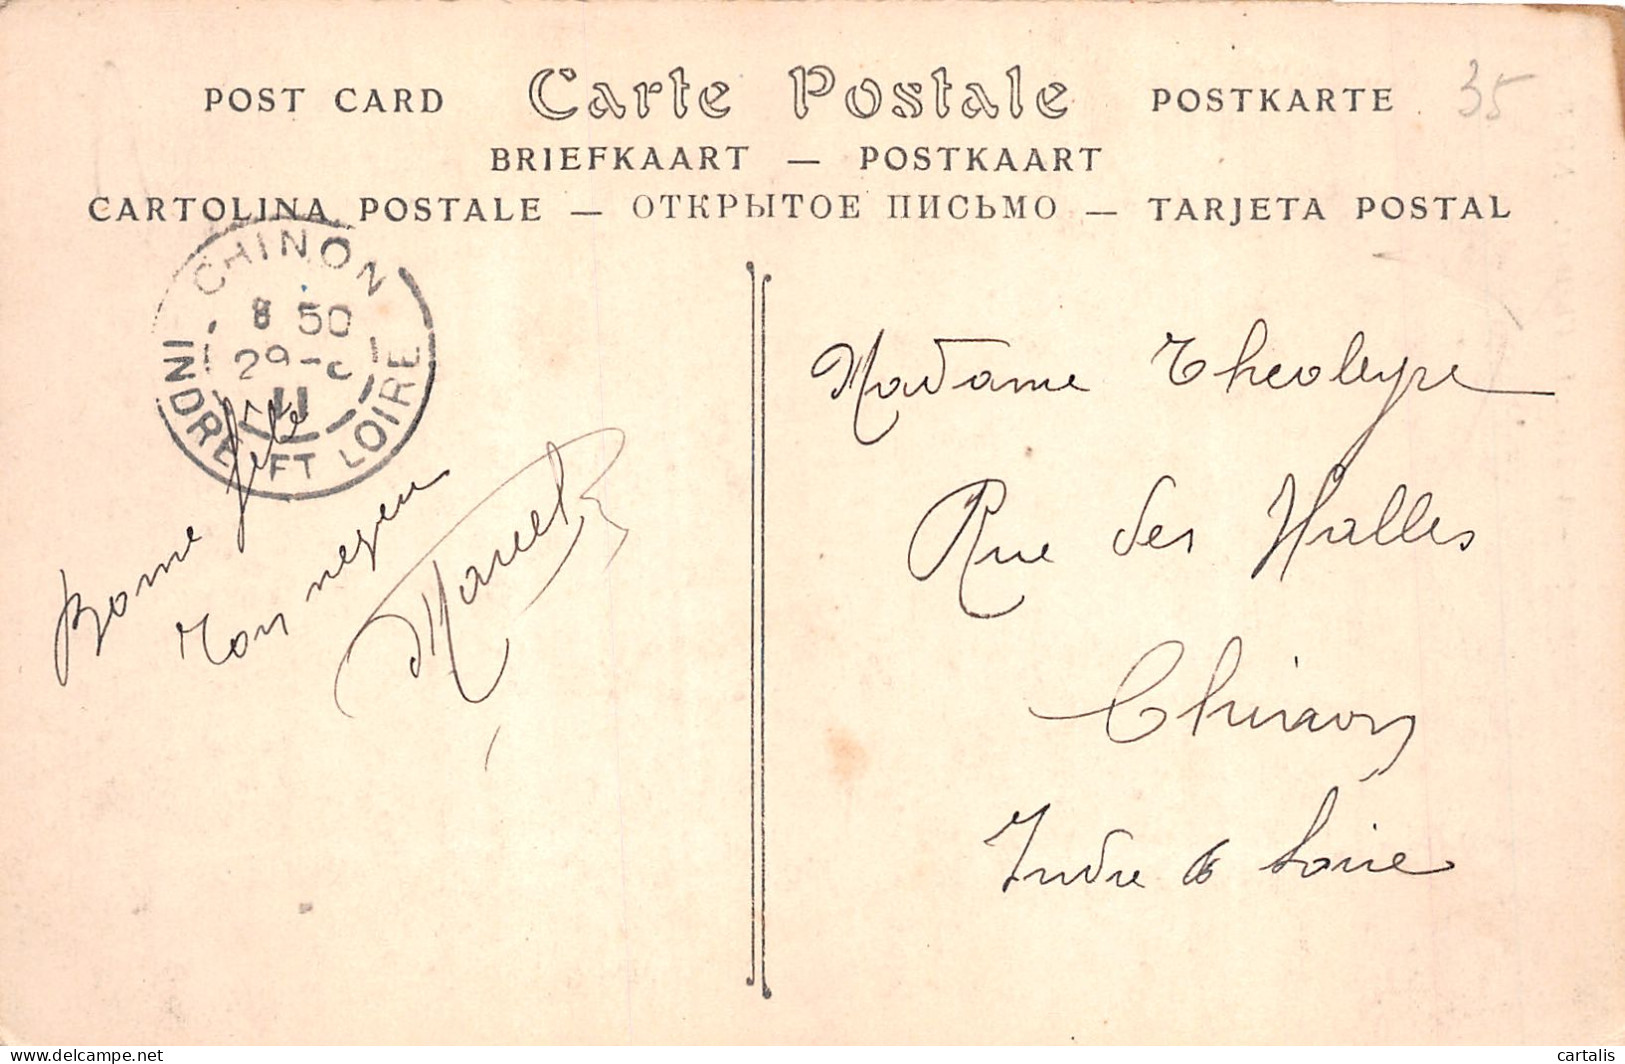 POST CARD Carte Postale POSTKARTE 35
BRIEFKAART — POSTKAART
CARTOLINA POSTALE — ОТКРЫТОЕ ПИСЬМО — TARJETA POSTAL
CHINON
8 50
29
11
INDRE ET LOIRE
Bonne fête
Ton neveu
Marcel
Madame Theoleyre
Rue des Halles
Chinon
Indre & Loire
cartalis
www.delcampe.net